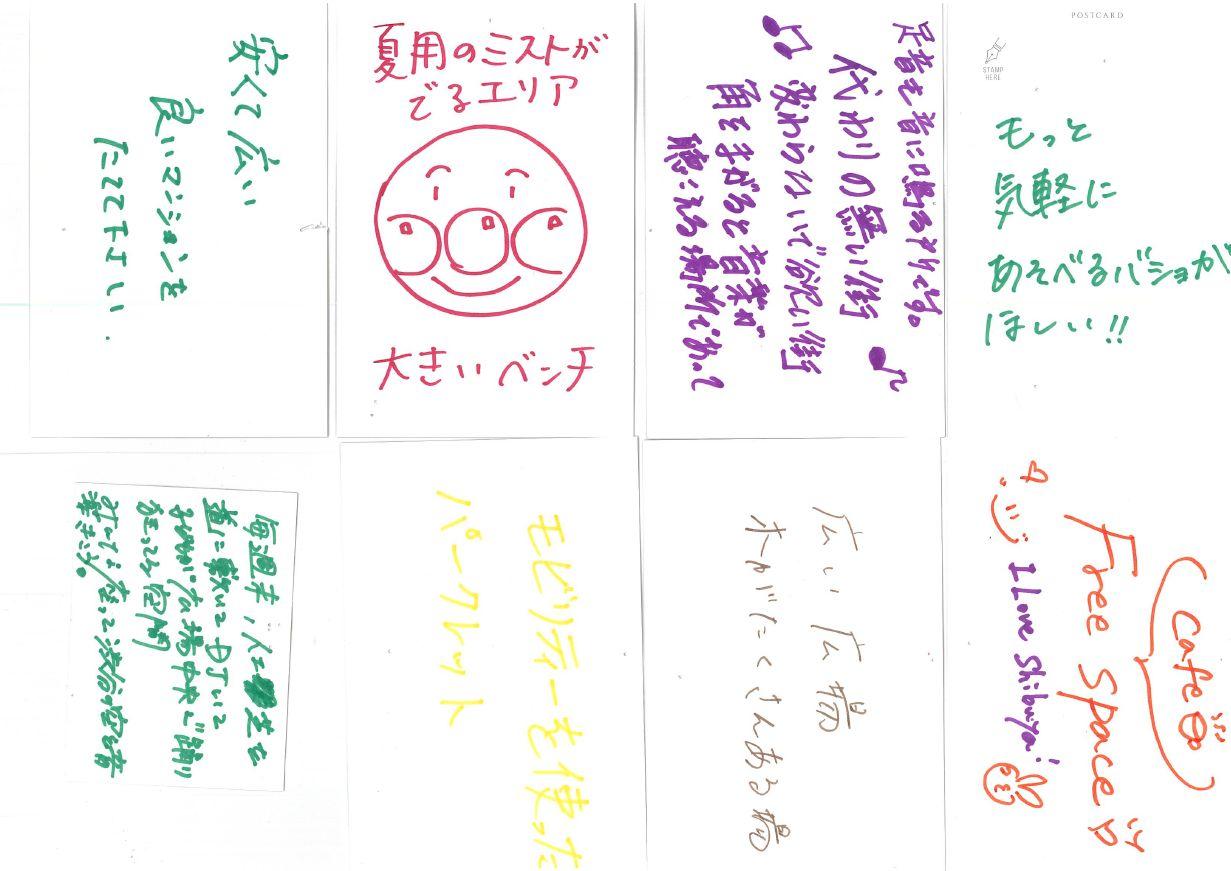 安くて広い
良いマンションを
たててホしい.
夏用のミストが
でるエリア
大きいベンチ
足音も音に鳴るヤケです。
代わりの無い街
変わらないで欲しい街
角を手がると音楽が
聴こえる場所であって
POSTCARD
STAMP
HERE
もっと
気軽に
あそべるバショが
ほしい!!
毎週末、人工芝を
道に敷いて DJがいて
な場中央で踊り
空間
モビリティーを使った
パークレット
広い広場
木がたくさんある場
(Cafe)
Free Space
I Love Shibuya!